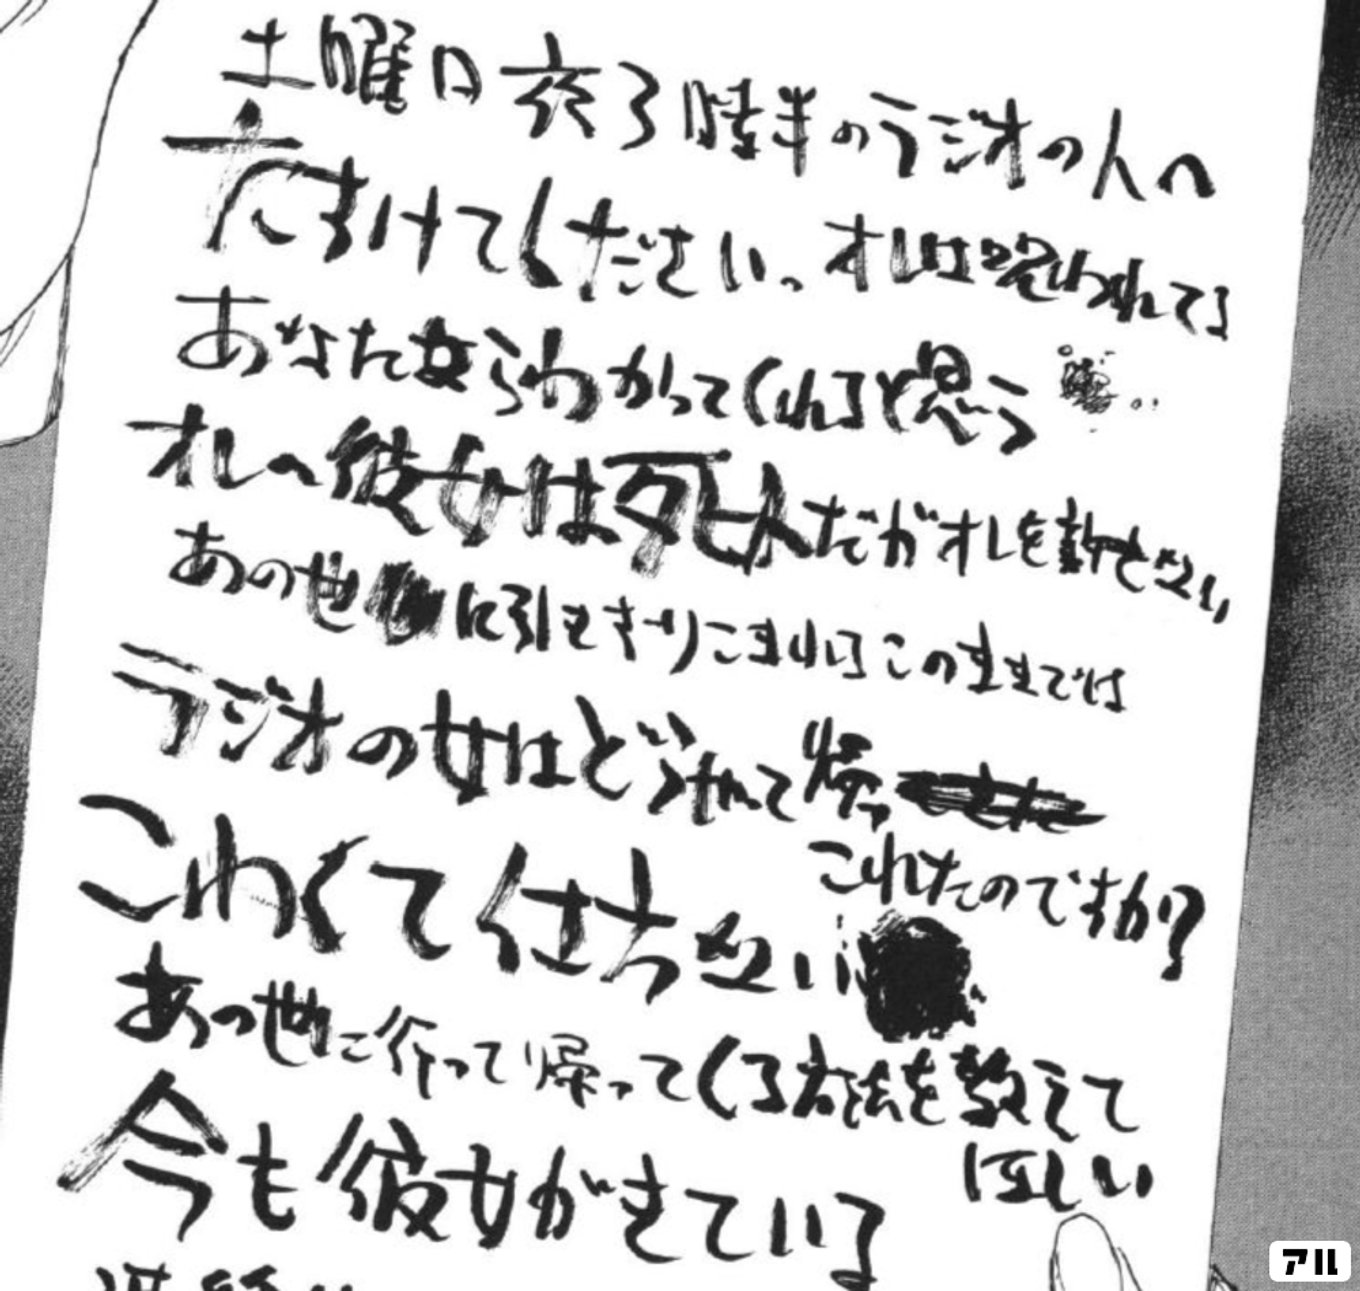 土曜日夜3時半のラジオの人へ
たすけてください。オレは呪われてる
あなたならわかってくれると思う
オレの彼女は死人だがオレを許さない
あの世に引きずりこまれる このままでは
ラジオの女はどうやって帰って
これたのですか?
こわくて仕方ない
あの世に行って帰ってくる方法を教えて
ほしい
今も彼女がきている
アル